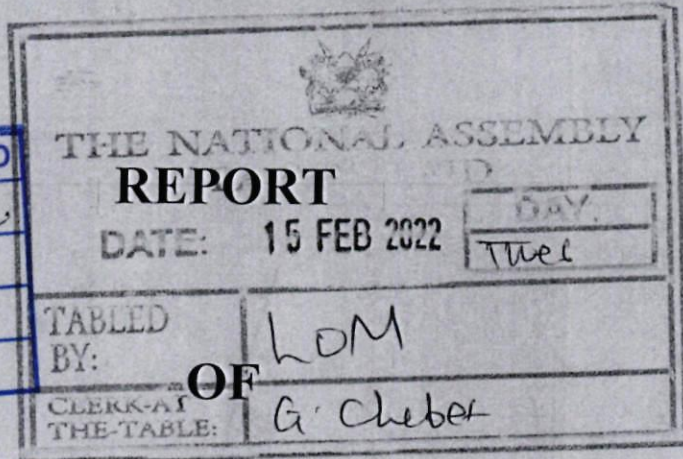 THE NATIONAL ASSEMBLY
REPORT
DATE: 15 FEB 2022
DAY.
Tues
TABLED BY:
LOM
OF
CLERK-AT THE-TABLE:
G. Cheber